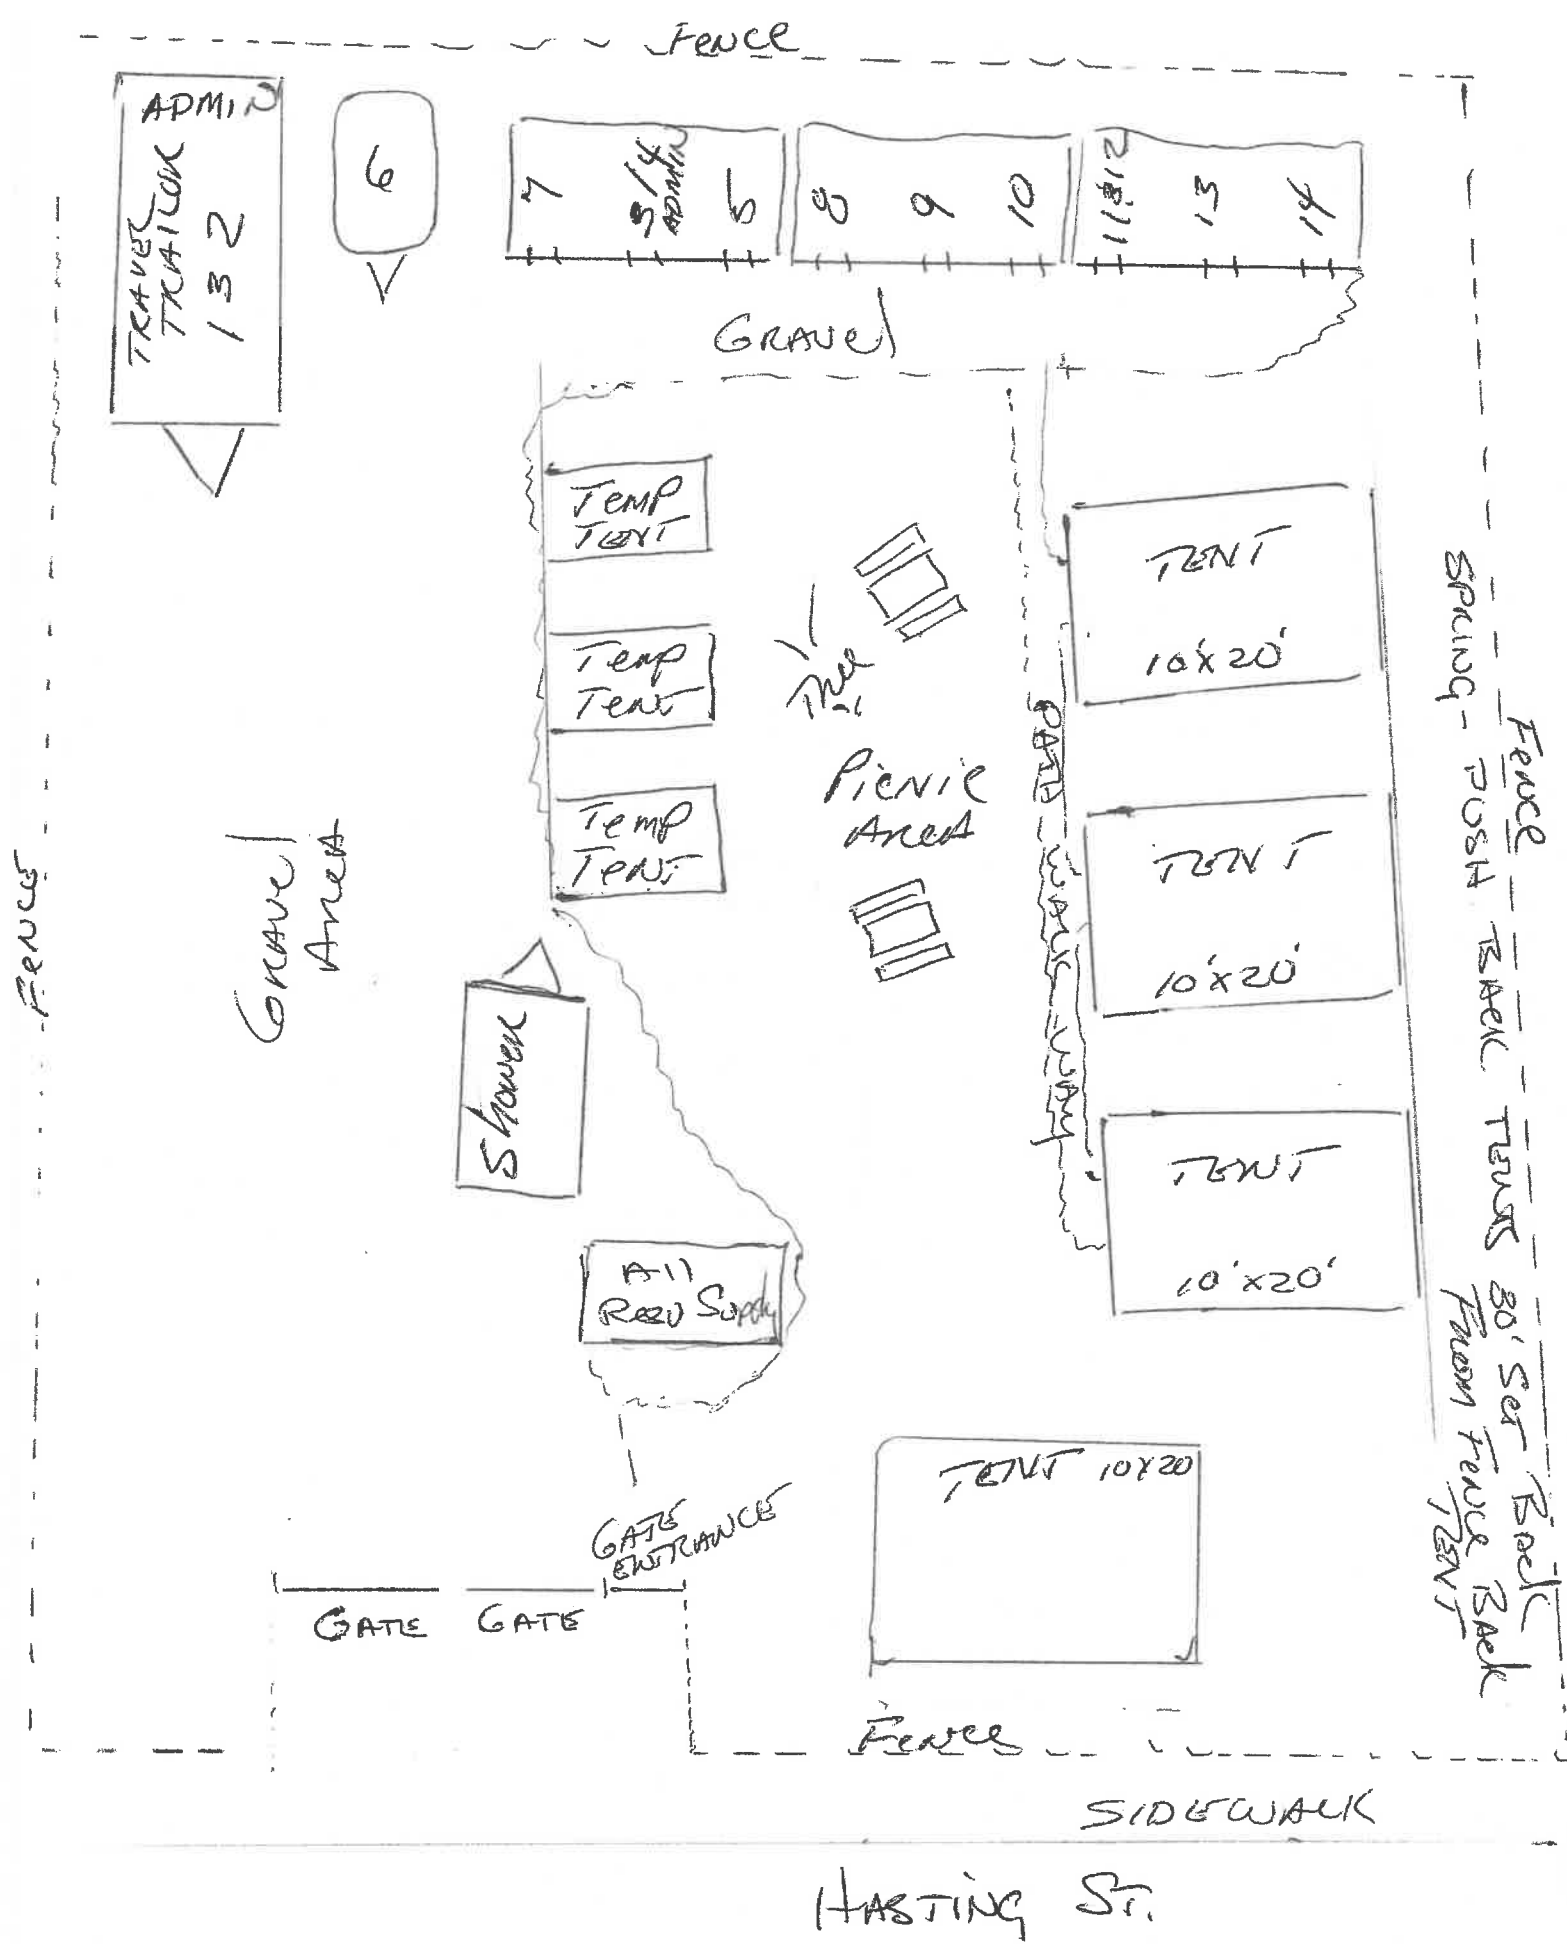 Fence
ADMIN
TRAVEL
TRAILOR
1 3 2
6
7
3/4
ADMIN
5
8
9
10
11&12
13
14
GRAVEl
Temp
TENT
Temp
TENT
Temp
TENT
Tree
Picnic
Area
PATH WALK-WAY
TENT
10'x20'
TENT
10'x20'
TENT
10'x20'
Fence
SPRING - PUSH BACK TENTS 30' Set Back
From Fence Back
TENT
FENCE
GRAVEl
AreA
Shower
All
Supply
GATE
ENTRANCE
GATE
GATE
TENT 10x20
Fence
SIDEWALK
HASTING ST.